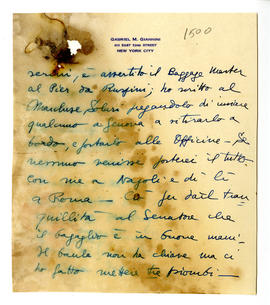 1500
GABRIEL M. GIANNINI
NEW YORK CITY
è avvertito il Baggage Master
al Pier da Ruspini; ho scritto al
pregandolo di inviare
qualcuno a Genova a ritirarlo a
bordo, e portarlo alle Officine - Se
nessuno venisse porterei il tutto
con me a Napoli e di lì
a Roma - Ciò per dar tran
quillità al Senatore che
il bagaglio è in buone mani -
Il baule non ha chiave ma ci
ho fatto mettere tre piombi -